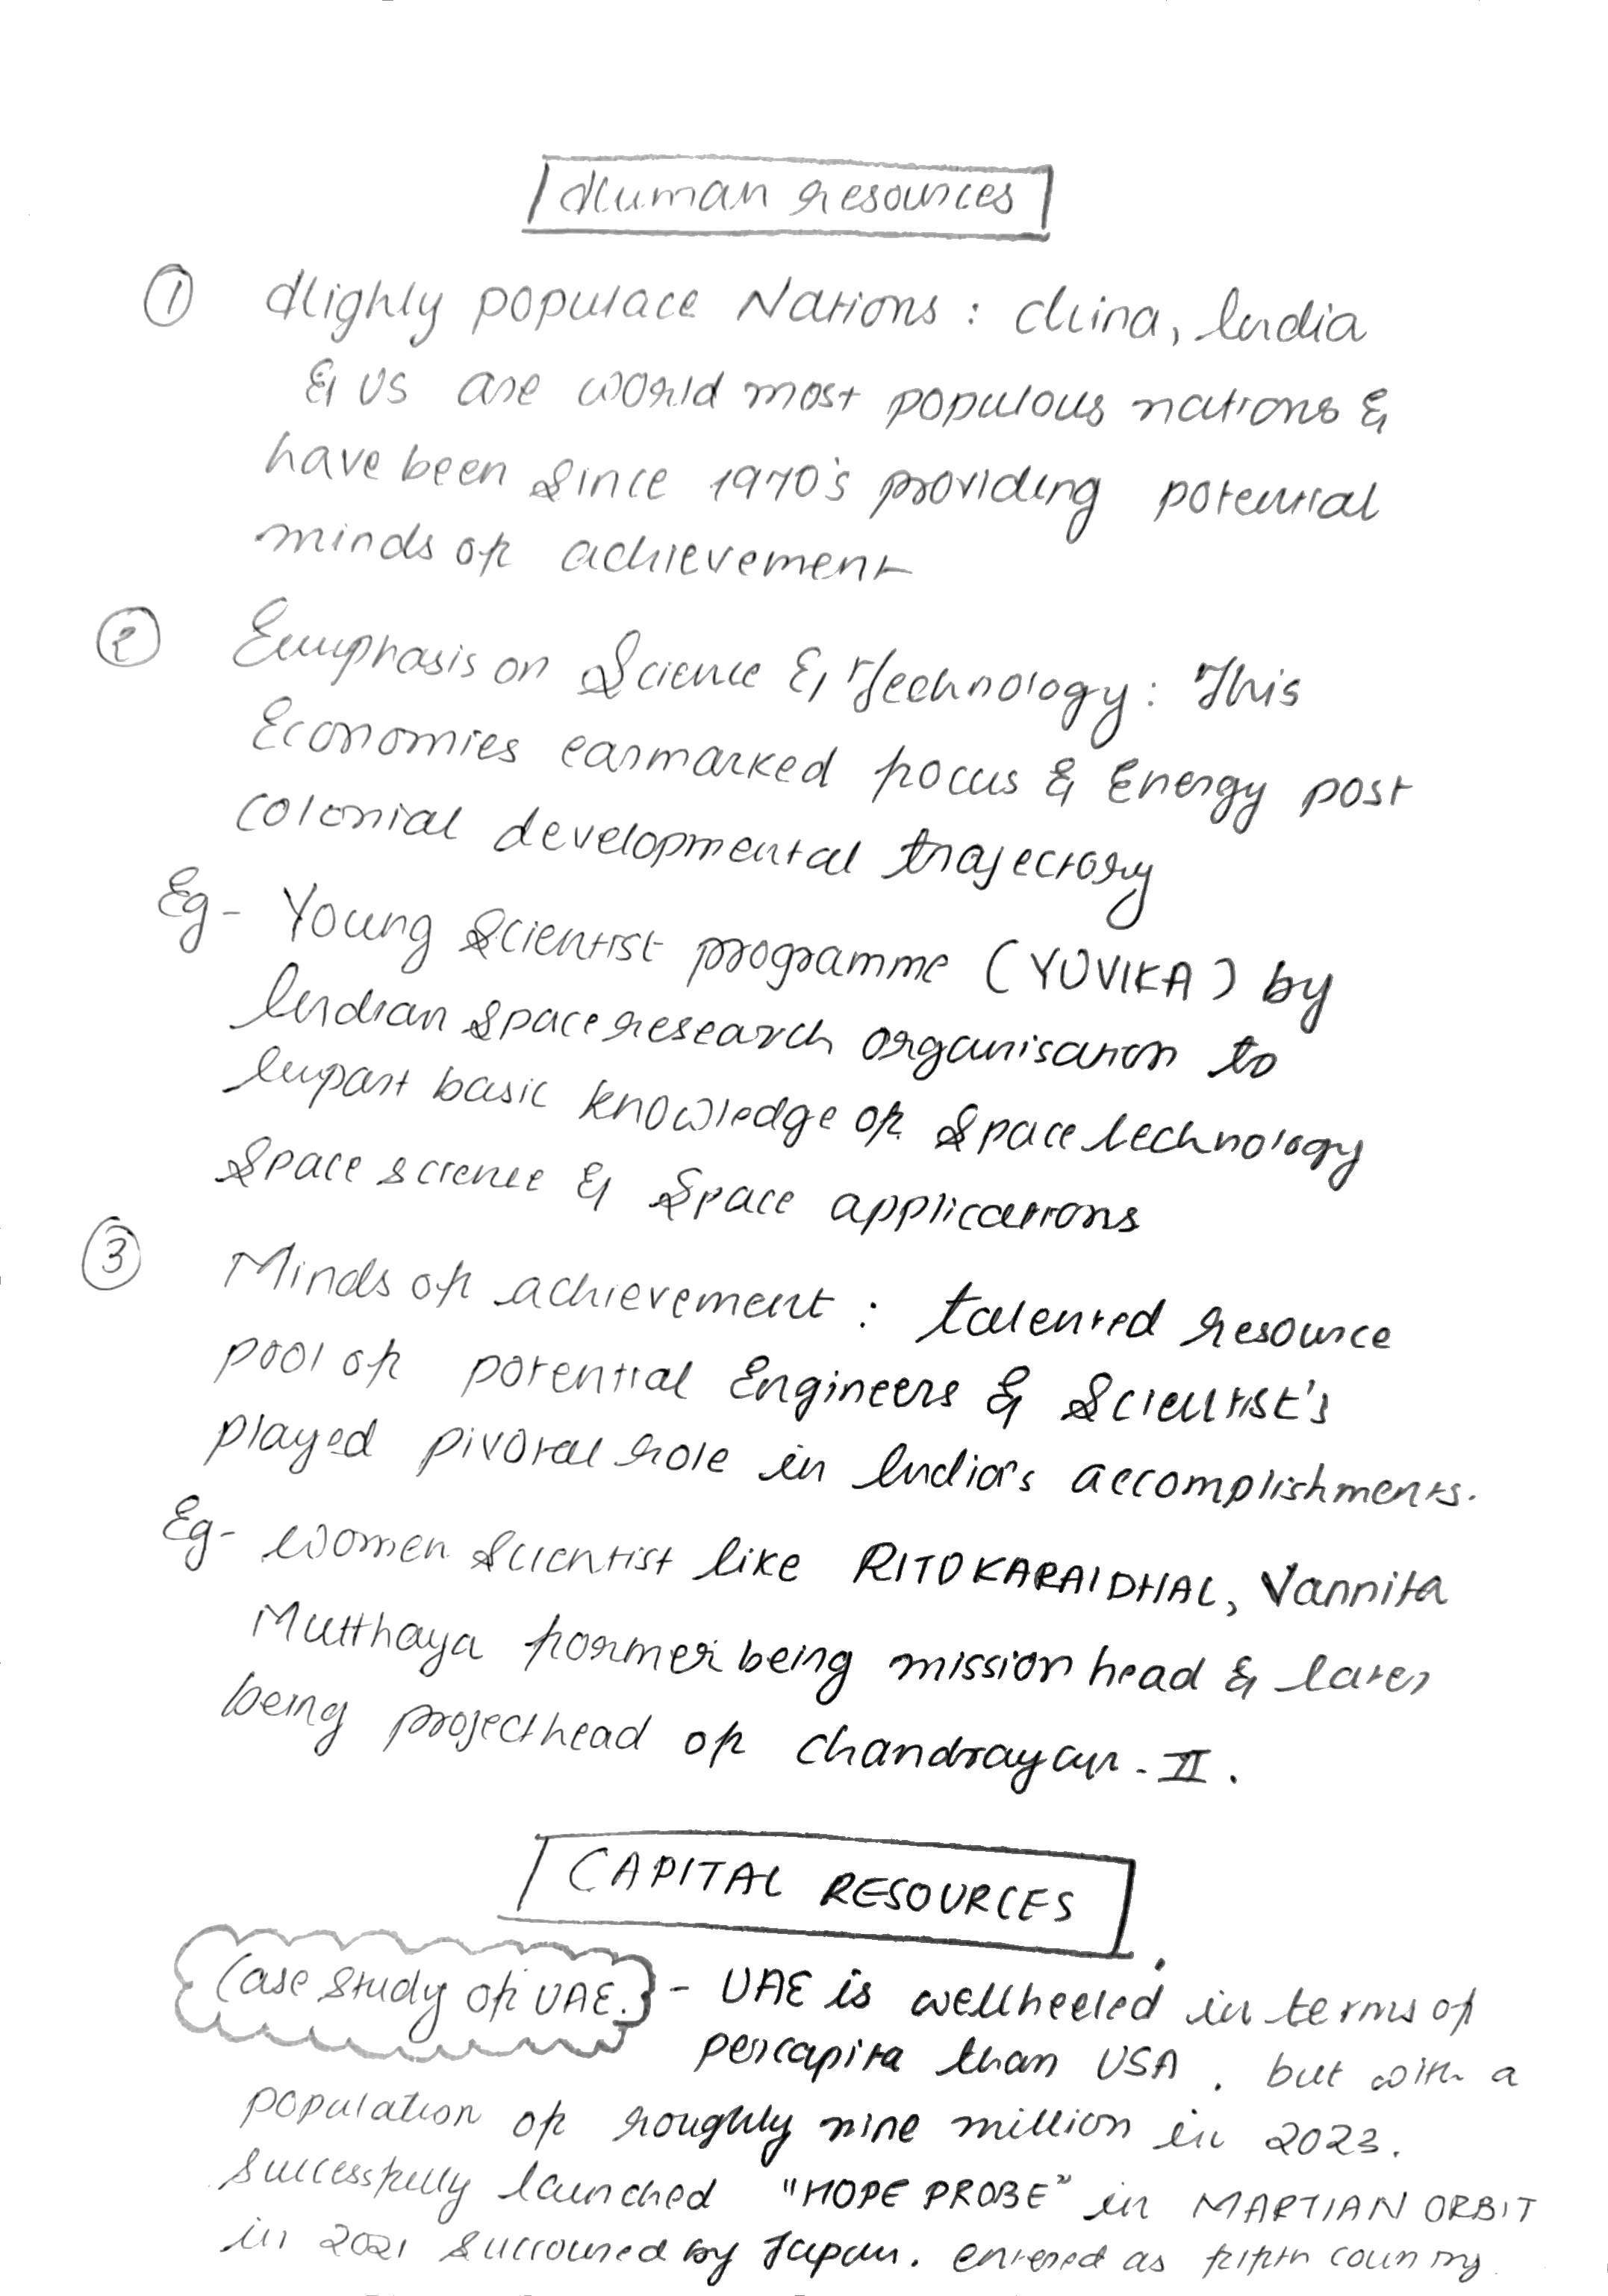 Human resources
① Highly populace Nations : China, India
& US are world most populous nations &
have been since 1970's providing potential
minds of achievement
② Emphasis on Science & Technology : This
Economies earmarked focus & Energy post
colonial developmental trajectory
Eg - Young Scientist programme (YUVIKA) by
Indian space research organisation to
Impart basic knowledge of space technology
Space science & Space applications
③ Minds of achievement : talented resource
pool of potential Engineers & Scientist's
played pivotal role in India's accomplishments.
Eg - women scientist like RITU KARAIDHAL, Vannita
Mutthaya former being mission head & later
being project head of chandrayan - II .
CAPITAL RESOURCES
Case study of UAE. - UAE is wellheeled in terms of
percapita than USA . but with a
population of roughly nine million in 2023.
successfully launched "HOPE PROBE" in MARTIAN ORBIT
in 2021 by Japan. entered as fifth country